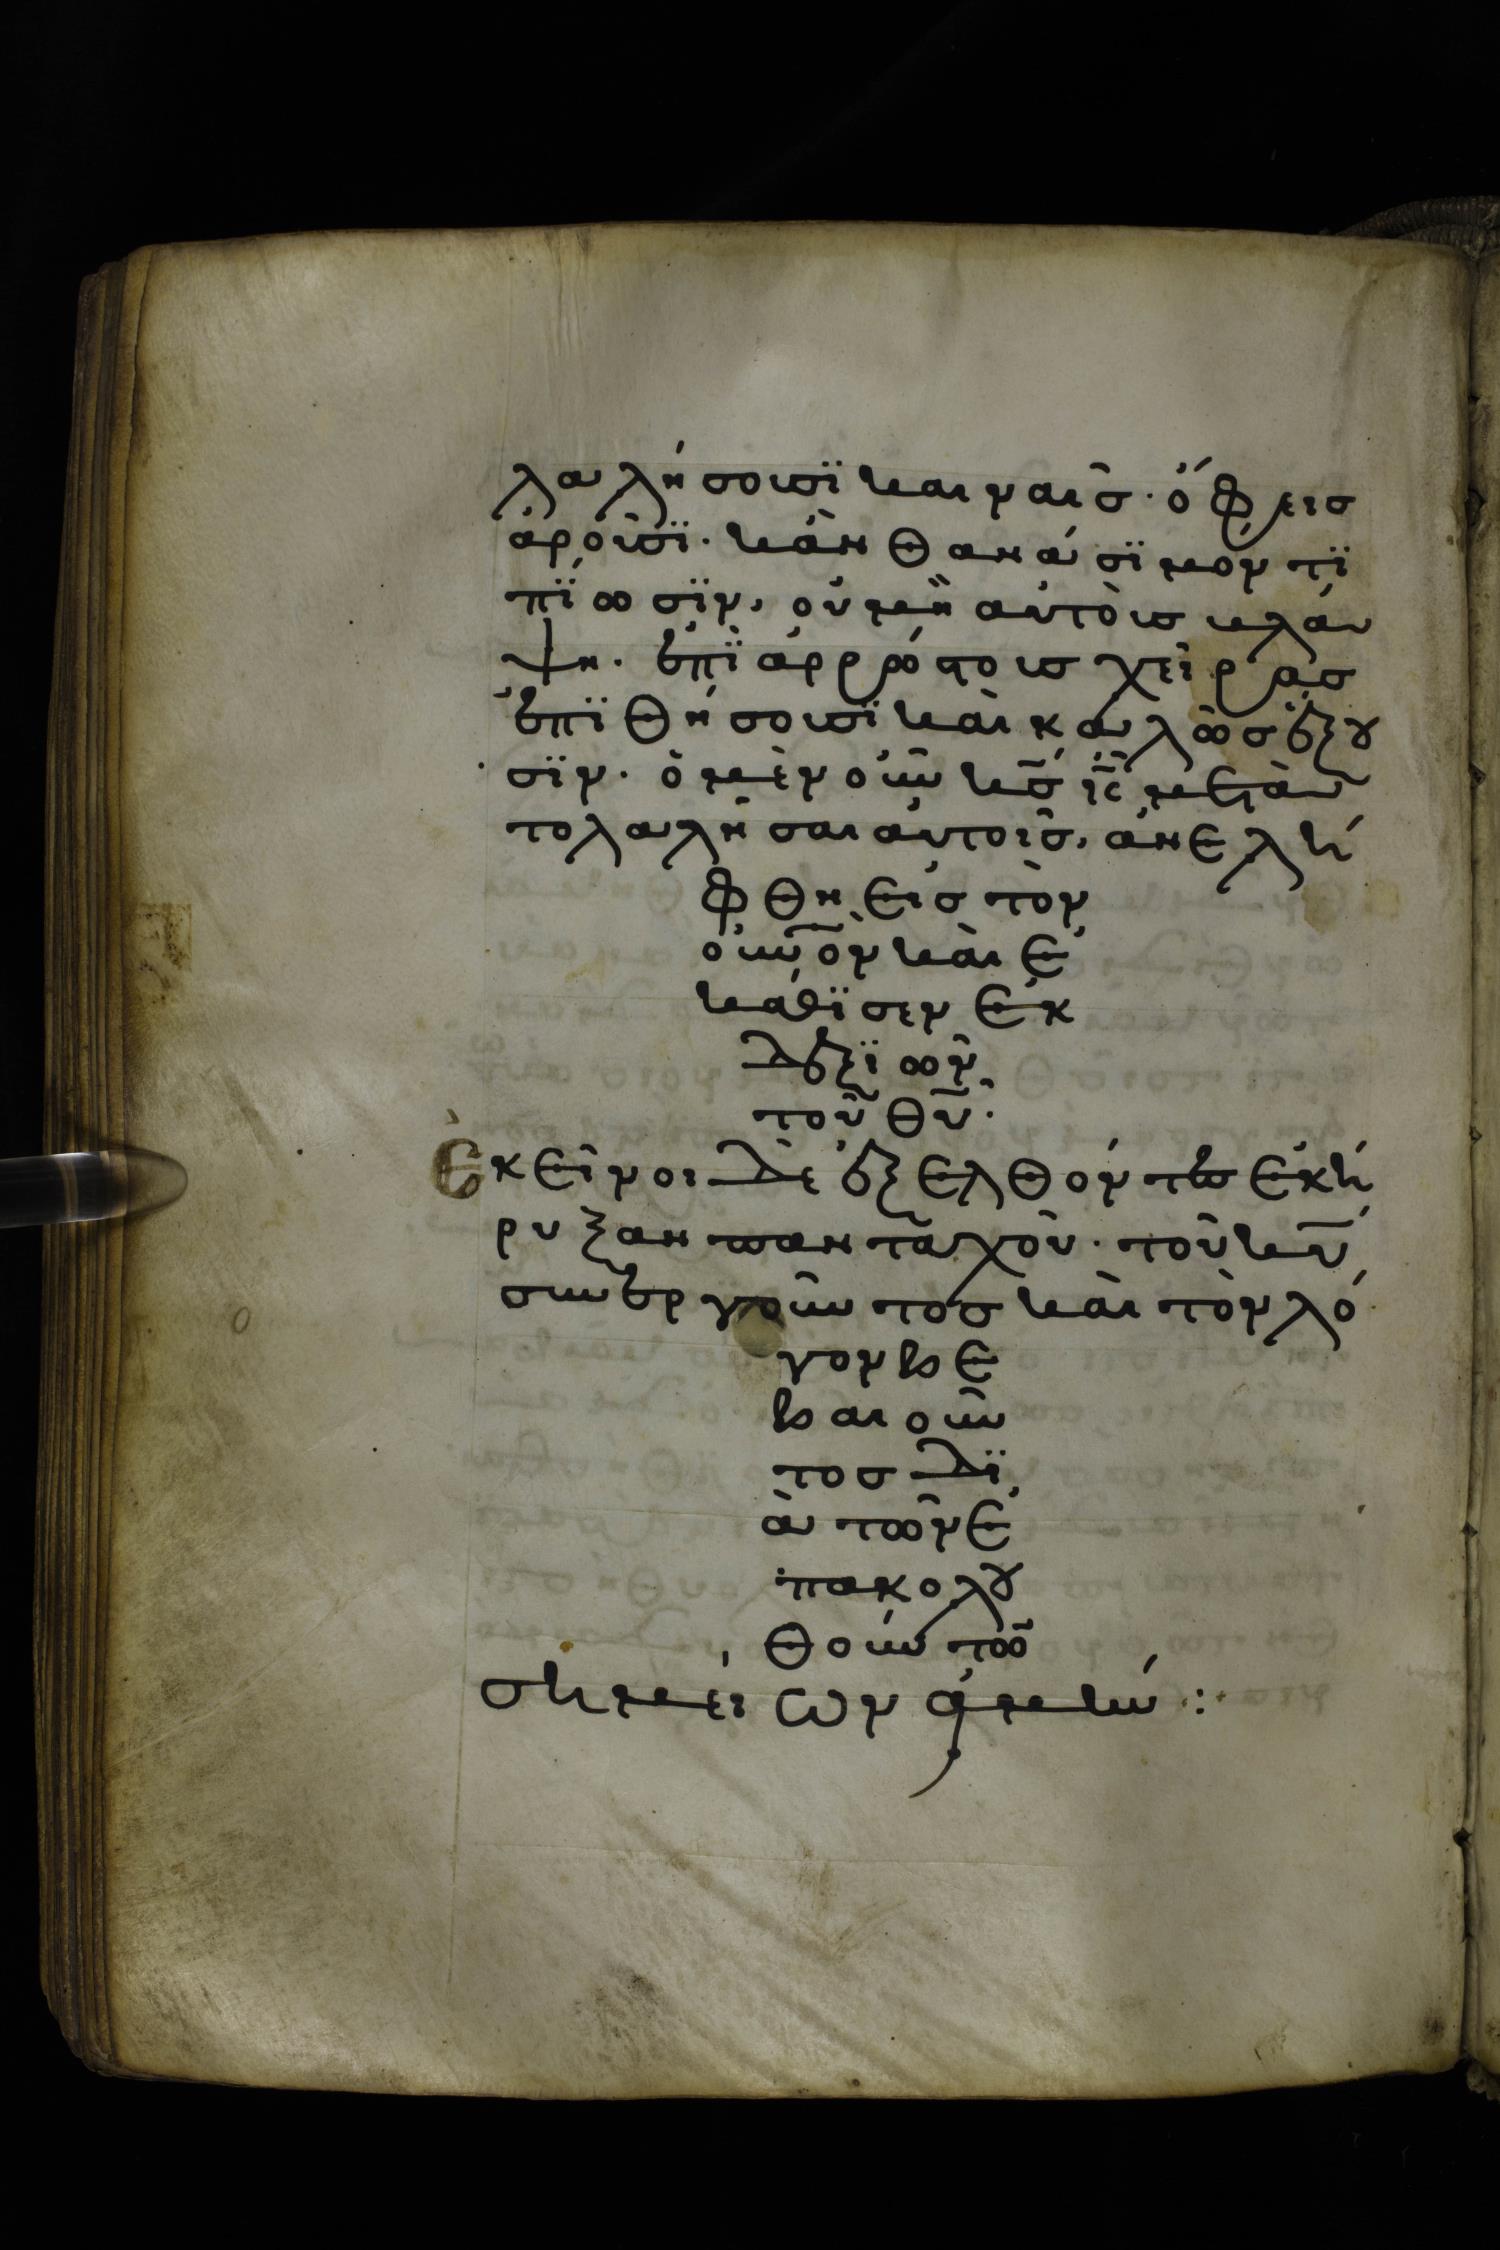 λαλήσουσϊ καιναῖσ· ὄφεισ
ἀροῦσϊ· κἂν θανάσϊμον τϊ
πΐωσϊν, οὐ μὴ αὐτοὺσ βλά
ψη· ἐπῒ ἀρρώστουσ χεῖρασ
ἐπϊθήσουσϊ καὶ καλῶσ ἕξου
σϊν· ὁ μὲν οὖν κ̅σ̅ ι̅σ̅ μετὰ
το λαλῆσαι αὐτοῖσ, ἀνελή
φθη εἰσ τὸν
ου̅νο̅ν καὶ ἐ
κάθϊσεν ἐκ
δεξϊῶν
τοῦ θ̅υ̅·
Ἐκεῖνοι δὲ ἐξελθόντεσ ἐκή
ρυξαν πανταχοῦ· τοῦ κ̅υ̅
συνεργοῦντοσ καὶ τὸν λό
γον βε
βαιοῦν
τοσ δϊ
ὰ τῶν ἐ
πακολου
θούντων
σημείων ἀμήν :